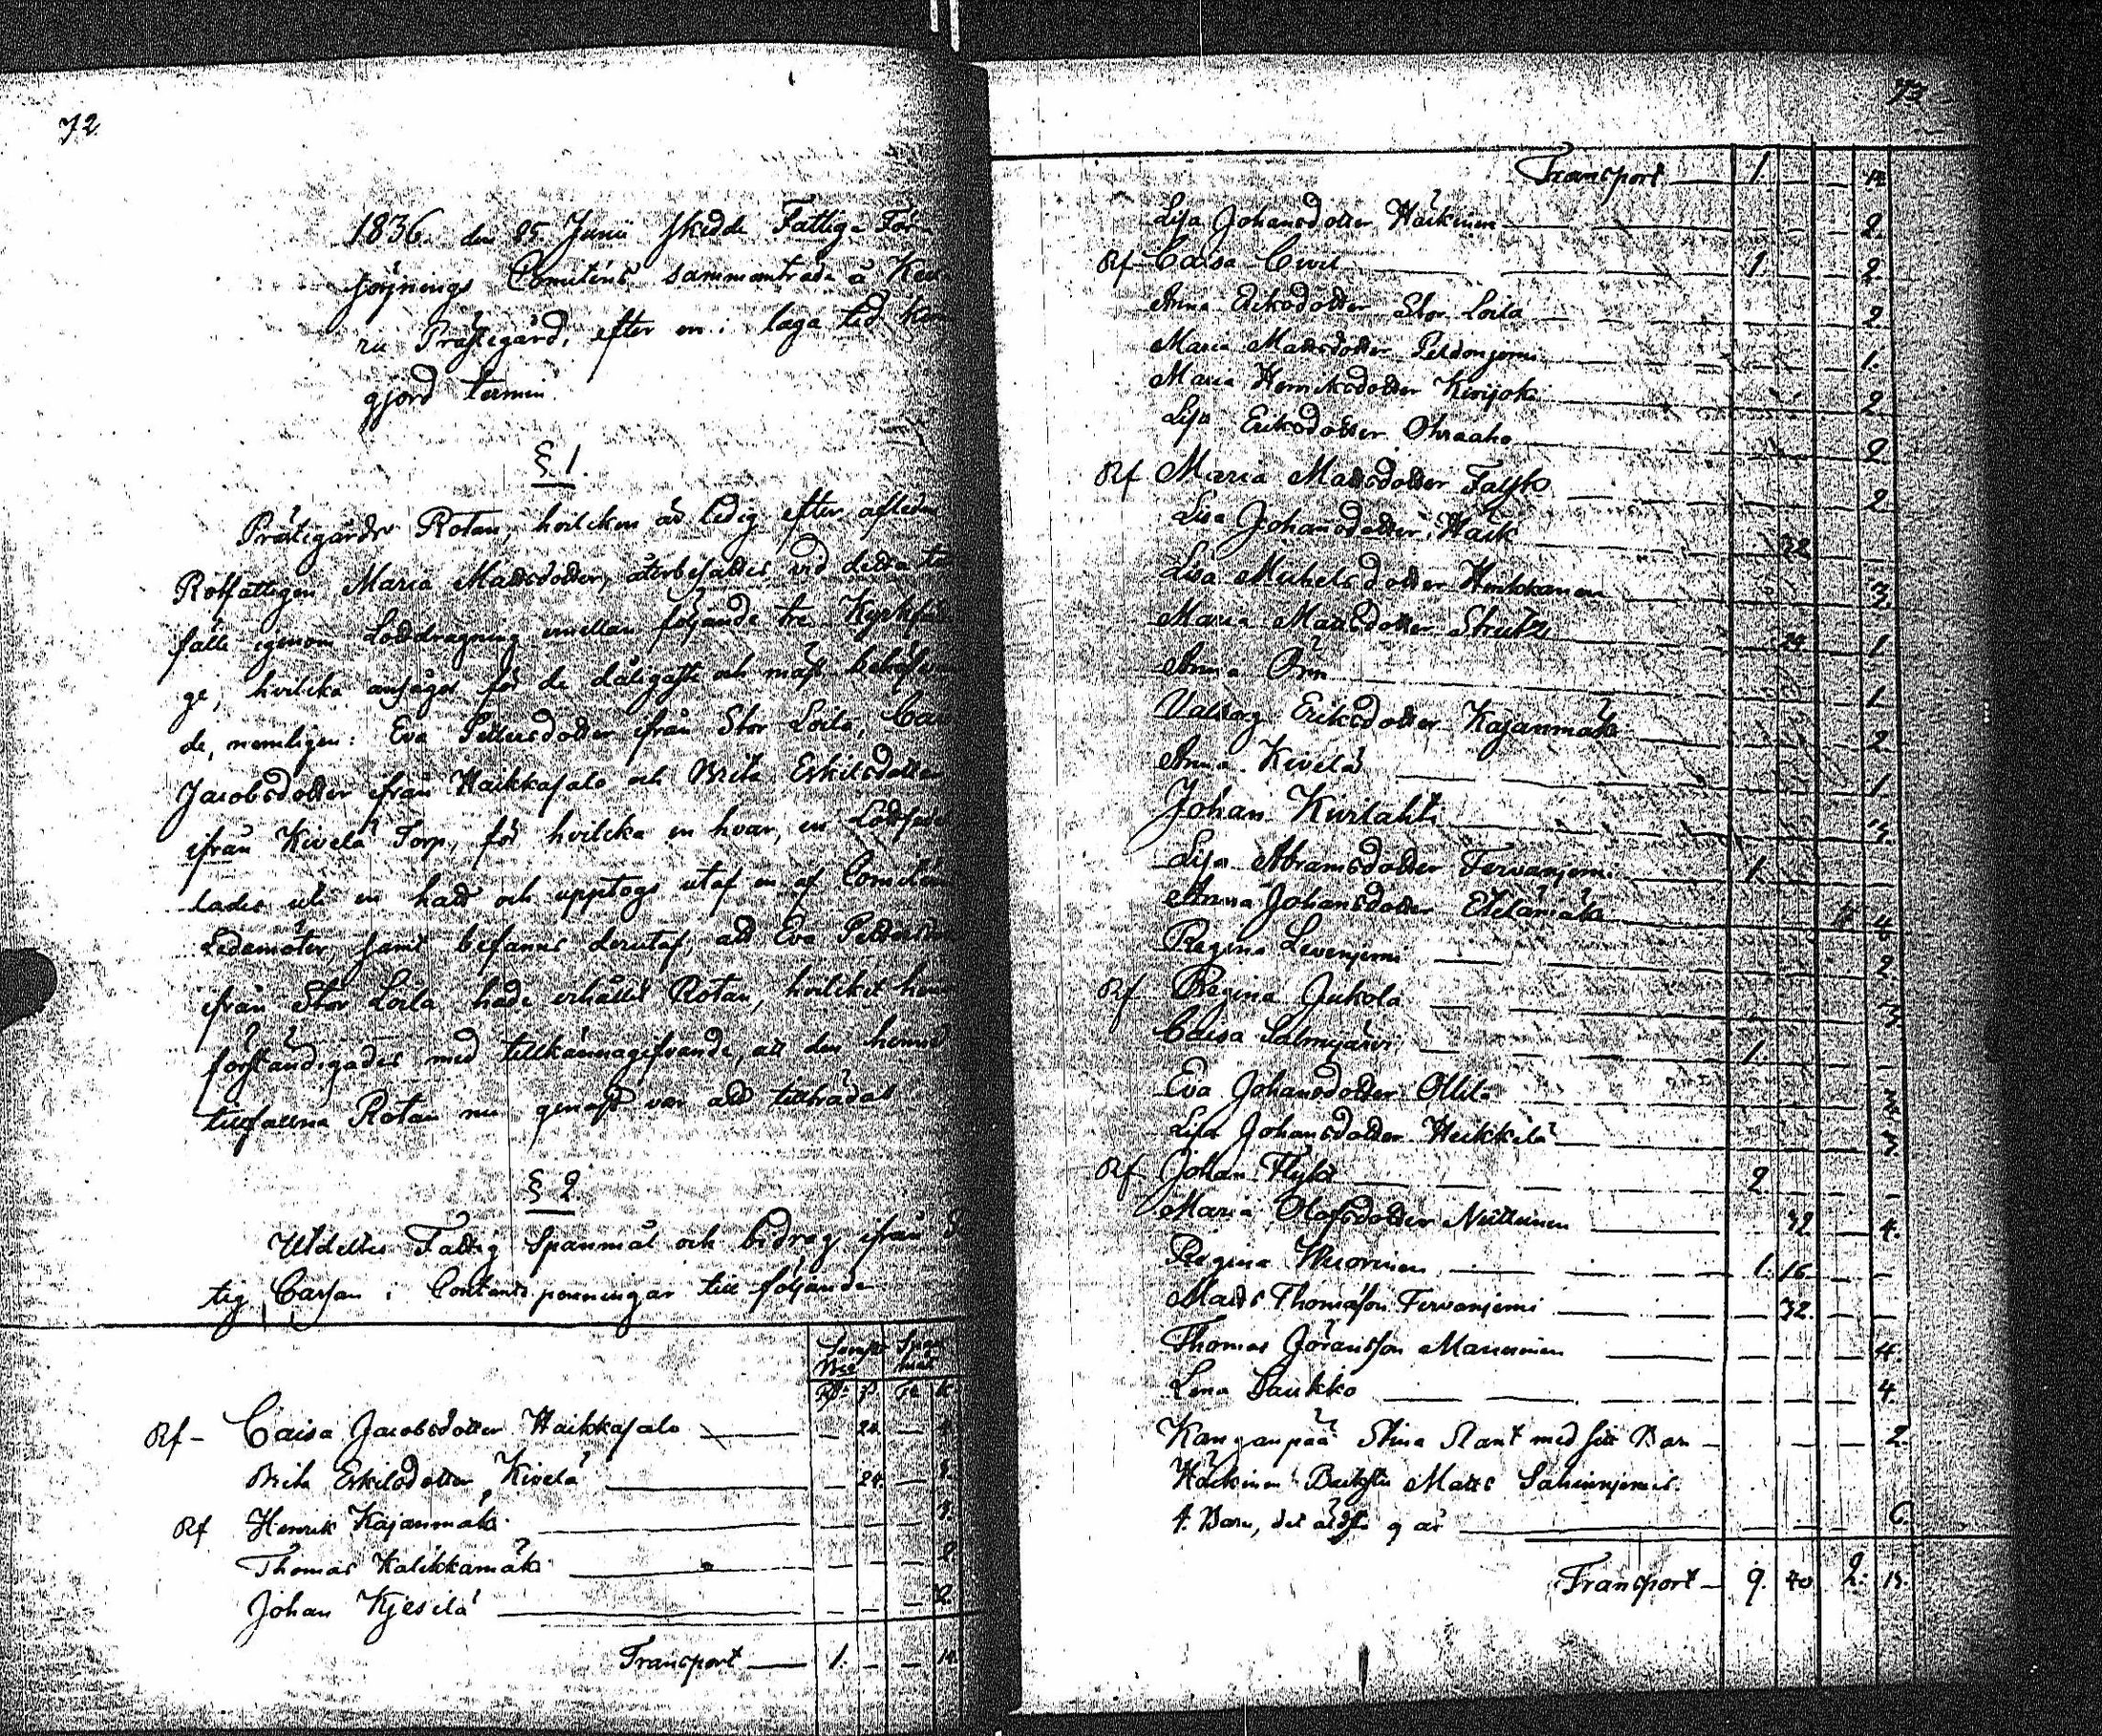 72
1836 den 25 Junii skedde Fattig-För-
sörjnings Comiténs sammanträde å Kau
ru Prästegård, efter en i laga tid kun
gjord termin.
§ 1.
Prästegårds Rotan, hvilken är ledig efter aflidne
Rotfattigen Maria Mattsdotter, återbesattes vid detta til
fälle igenom Lottdragning emellan följande tre Kyrkfat
ge, hvilcka ansågos för de dåligaste och mäst behöfvan
de, nemligen: Eva Pettersdotter ifrån Stor Loila, Cais
Jacobsdotter ifrån Haikkasalo och Brita Erkilsdotter
ifrån Kivelä Torp, för hvilcka en hvar, en Lottsed
lades uti en hatt och upptogs utaf en af Comitéens
Ledamöter, samt befanns derutaf, att Eva Pettersdot
ifrån Stor Loila hade erhållit Rotan, hvilcket henne
förständigades med tillkännagifvande, att den henne
tillfallna Rotan nu genast var att tillträdas
§ 2.
Utdeltes Fattig Spanmål och bidrag ifrån
tig Cassan i Contants penningar till följande
Rf - Caisa Jacobsdotter Haikkasalo — 24.
Brita Erkilsdotter Kivelä — 24.
Rf Henrik Kajanmäki 3.
Thomas Kalikkamäki 2.
Johan Kjesilä 2.
Transport — 1. — — 14.
73
Transport — 1. — 14
Lisa Johansdotter Häikinen — 2.
Rf Caisa Civil — 1. — 2
Anna Eriksdotter Stor Loila — 2
Maria Mattsdotter Peldonjemi — 1.
Maria Henriksdotter Kivijoki — 2
Lisa Eriksdotter Ohraaho — 2
Rf Maria Mattsdotter Falsk — 2
Lisa Johansdotter Häik — 32
Lisa Michelsdotter Heikkanen — 3.
Maria Mattsdotter Strutz — 24 1
Anna Örn — 1
Valborg Eriksdotter Kajanmäki — 2
Anna Kivelä — 1
Johan Kivilahti — 3.
Lisa Abramsdotter Tervanjemi — 1.
Anna Johansdotter Etelämäki — 4
Regina Levenjemi — 2
Rf Regina Jukola — 3
Caisa Salmijärvi — 1.
Eva Johansdotter Ollila — 3
Lisa Johansdotter Heikkilä — 3
Rf Johan Flykt — 2.
Maria Olofsdotter Niittunen — 32 4.
Regina Wuorinen — 1. 16
Matts Thomasson Tervanjemi — 32.
Thomas Jöransson Manninen — 4.
Lena Paukko — 4.
Kanganpää Stina Slant med sitt Barn — 2.
Häikinen Matts Sahinnjemis
4. Barn, det äldste 9 år — 6.
Transport — 9. 40 2. 15.